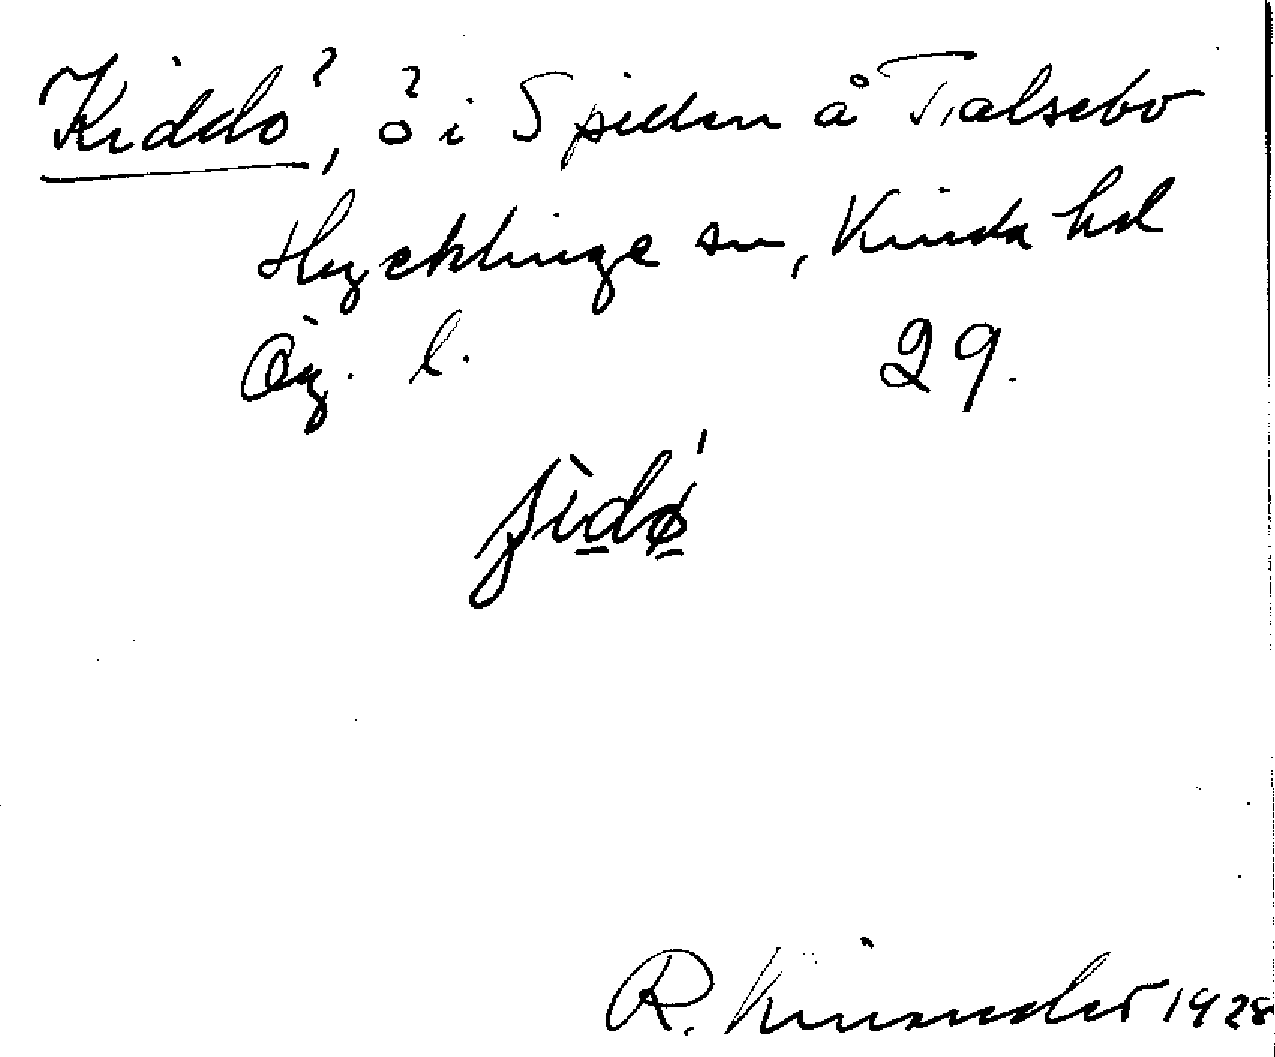 Kiddö, ö i Spillen å Talsebo
Hycklinge sn, Kinda hd
Ög. l. 29.
jidø
R. Kinander 1928